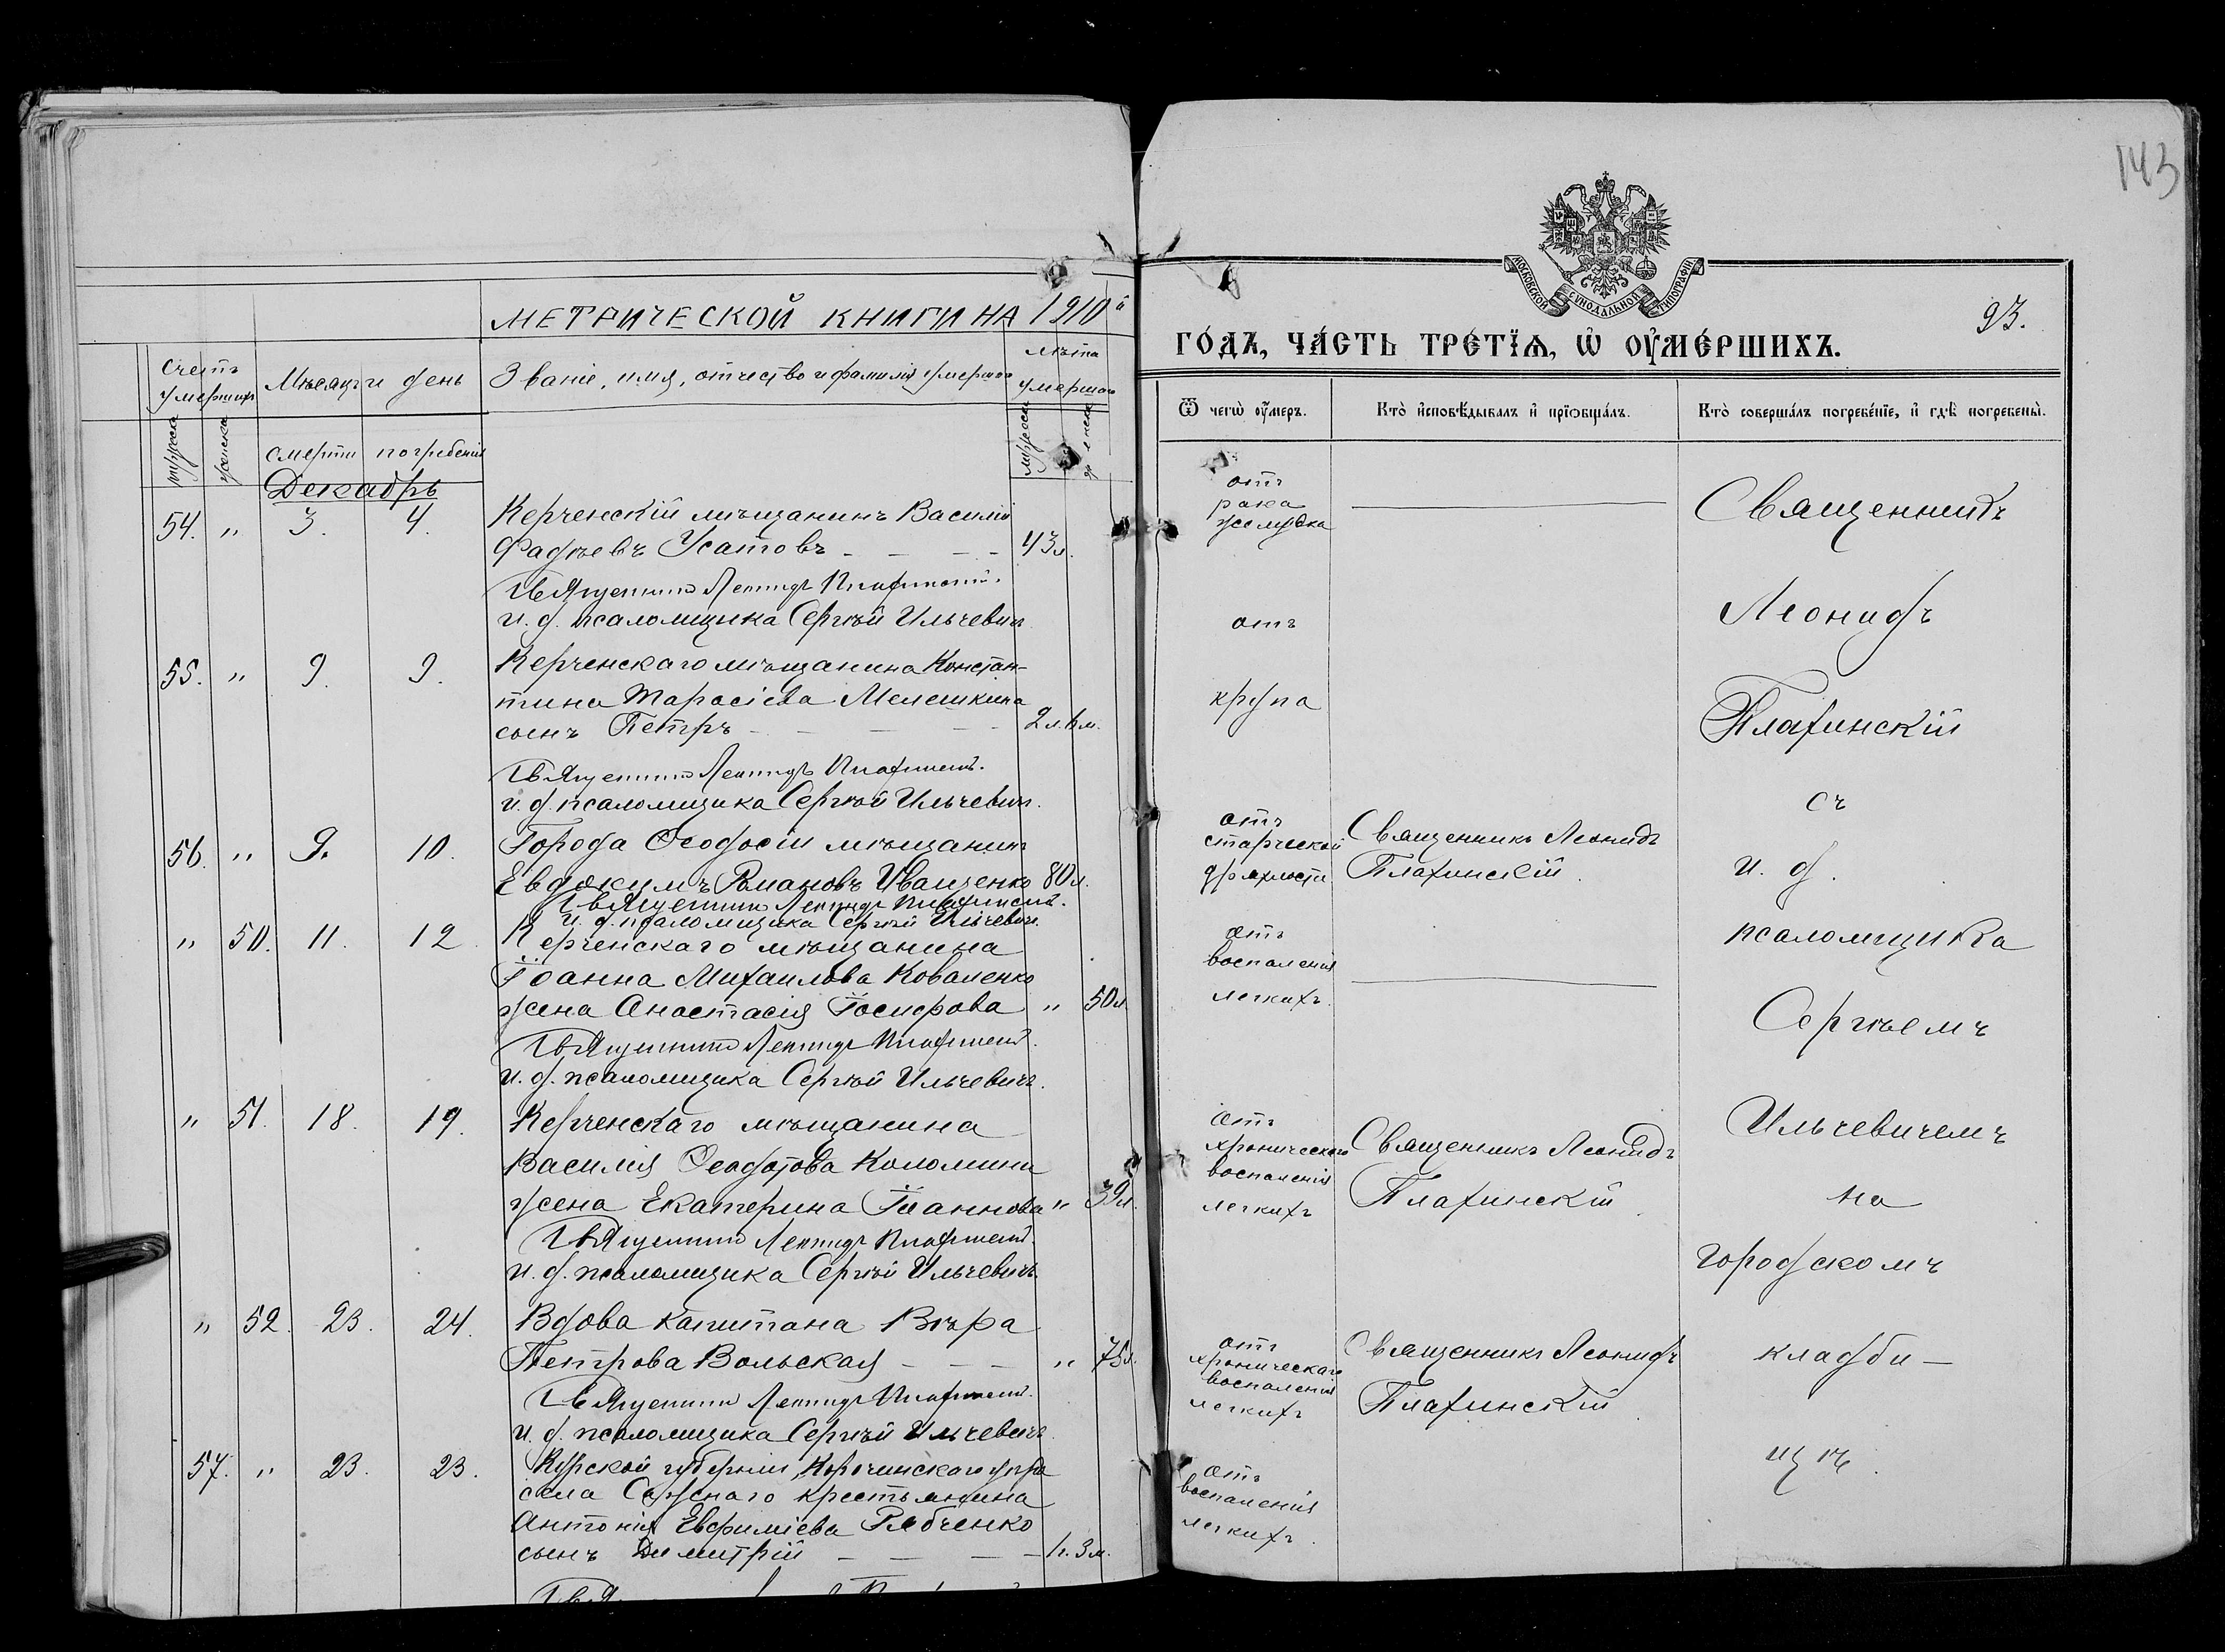 143
МОСКОВСКОЙ СѴНОДАЛЬНОЙ ТИПОГРАФІИ
93.
МЕТРИЧЕСКОЙ КНИГИ НА 1910й
ГО́ДЪ, ЧА́СТЬ ТРЕ́ТЇѦ, Ѡ҆ ОУ҆МЕ́РШИХЪ.
Счетъ умершихъ
Мѣсяцъ и день
Званіе, имя, отчество и фамилія умершаго
лѣта умершаго
Ѿ чегѡ̀ оу҆́меръ.
Кто̀ и҆сповѣ́дывалъ и҆ прїѡбща́лъ.
Кто̀ соверша́лъ погребе́нїе, и҆ гдѣ̀ погребены̀.
мужска
женска
смерти
погребенія
мужеска
женска
Декабрь
54. " 3. 4.
Керченскій мѣщанинъ Василій
Фадѣевъ Усатовъ - - - - 43 л.
отъ
рака
желудка
Священникъ Леонидъ Плахинскій.
и. д. псаломщика Сергѣй Ильчевич
55. " 9. 9.
Керченскаго мѣщанина Констан-
тина Тарасіева Мелешкина
сынъ Петръ - - - - 2 л. 6 м.
отъ
крупа
Священникъ Леонидъ Плахинскій.
и. д. псаломщика Сергѣй Ильчевич.
56. " 9. 10.
Города Ѳеодосіи мѣщанинъ
Евдокимъ Романовъ Иващенко 80 л.
отъ
старческой
дряхлости
Священникъ Леонидъ
Плахинскій.
Священникъ Леонидъ Плахинскій.
и. д. псаломщика Сергѣй Ильчевич.
" 50. 11. 12.
Керченскаго мѣщанина
Іоанна Михаилова Коваленко
жена Анастасія Іосифова " 50 л.
отъ
воспаленія
легкихъ.
Священникъ Леонидъ Плахинскій.
и. д. псаломщика Сергѣй Ильчевичъ.
" 51. 18. 19.
Керченскаго мѣщанина
Василія Ѳеодотова Коломини
жена Екатерина Іоаннова " 39 л.
отъ
хроническаго
воспаленія
легкихъ
Священникъ Леонидъ
Плахинскій.
Священникъ Леонидъ Плахинскій.
и. д. псаломщика Сергѣй Ильчевичъ.
" 52. 23. 24.
Вдова капитана Вѣра
Петрова Вольская - - - " 75 л.
отъ
хроническаго
воспаленія
легкихъ
Священникъ Леонидъ
Плахинскій.
Священникъ Леонидъ Плахинскій.
и. д. псаломщика Сергѣй Ильчевичъ.
57. " 23. 23.
Курской губерніи, Корочинскаго уѣзда
села крестьянина
Антонія Евфиміева Рябченко
сынъ Димитрій - - - - 1 г. 3 м.
отъ
воспаленія
легкихъ.
Священникъ
Леонидъ
Плахинскій
съ
и. д.
псаломщика
Сергѣемъ
Ильчевичемъ
на
городскомъ
кладби-
щѣ.